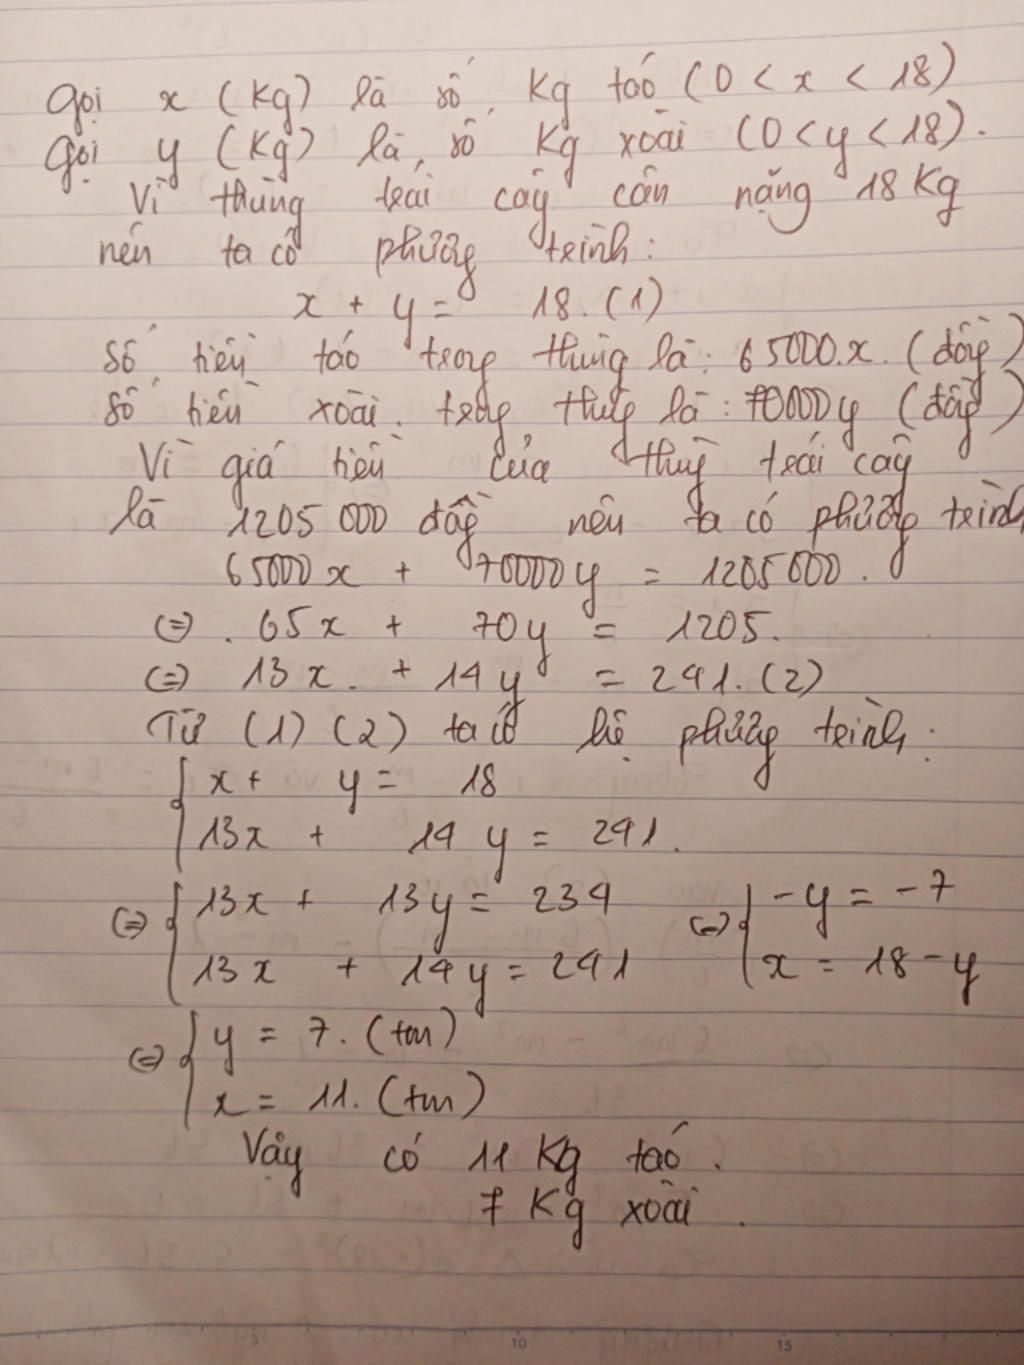 Gọi x (Kg) là số Kg táo (0 < x < 18)
Gọi y (Kg) là số Kg xoài (0 < y < 18).
Vì thùng trái cây cân nặng 18 Kg
nên ta có phương trình:
x + y = 18. (1)
Số tiền táo trong thùng là: 65000.x. (đồng)
Số tiền xoài. trong thùng là: 70000y (đồng)
Vì giá tiền của thùng trái cây
là 1205 000 đồng nên ta có phương trình
65000x + 70000y = 1205000.
(=) . 65x + 70y = 1205.
(=) 13x. + 14y = 241. (2)
Từ (1) (2) ta có hệ phương trình:
{ x + y = 18
13x + 14y = 241.
(=) { 13x + 13y = 234 (=) { -y = -7
13x + 14y = 241 x = 18 - y
(=) { y = 7. (tm)
x = 11. (tm)
Vậy có 11 Kg táo.
7 Kg xoài.
5 10 15